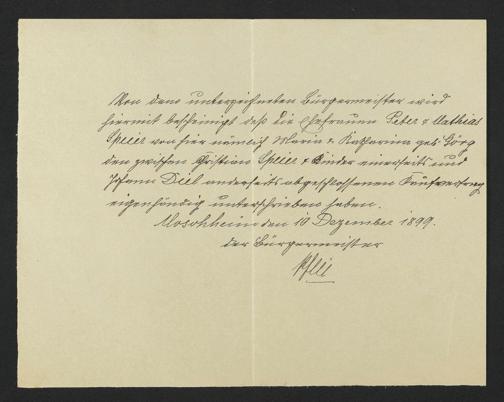 Von dem unterzeichneten Bürgermeister wird
hiermit bescheinigt daß die Ehefrauen Peter & Mathias
Speier von hier nämlich Maria & Katharina geb. Görg
den zwischen Christian Speier & Kinder einerseits und
Johann Diel anderseits abgeschlossenen Kaufvertrag
eigenhändig unterschrieben haben.
Mosohheim den 10 Dezember 1899.
der Bürgermeister